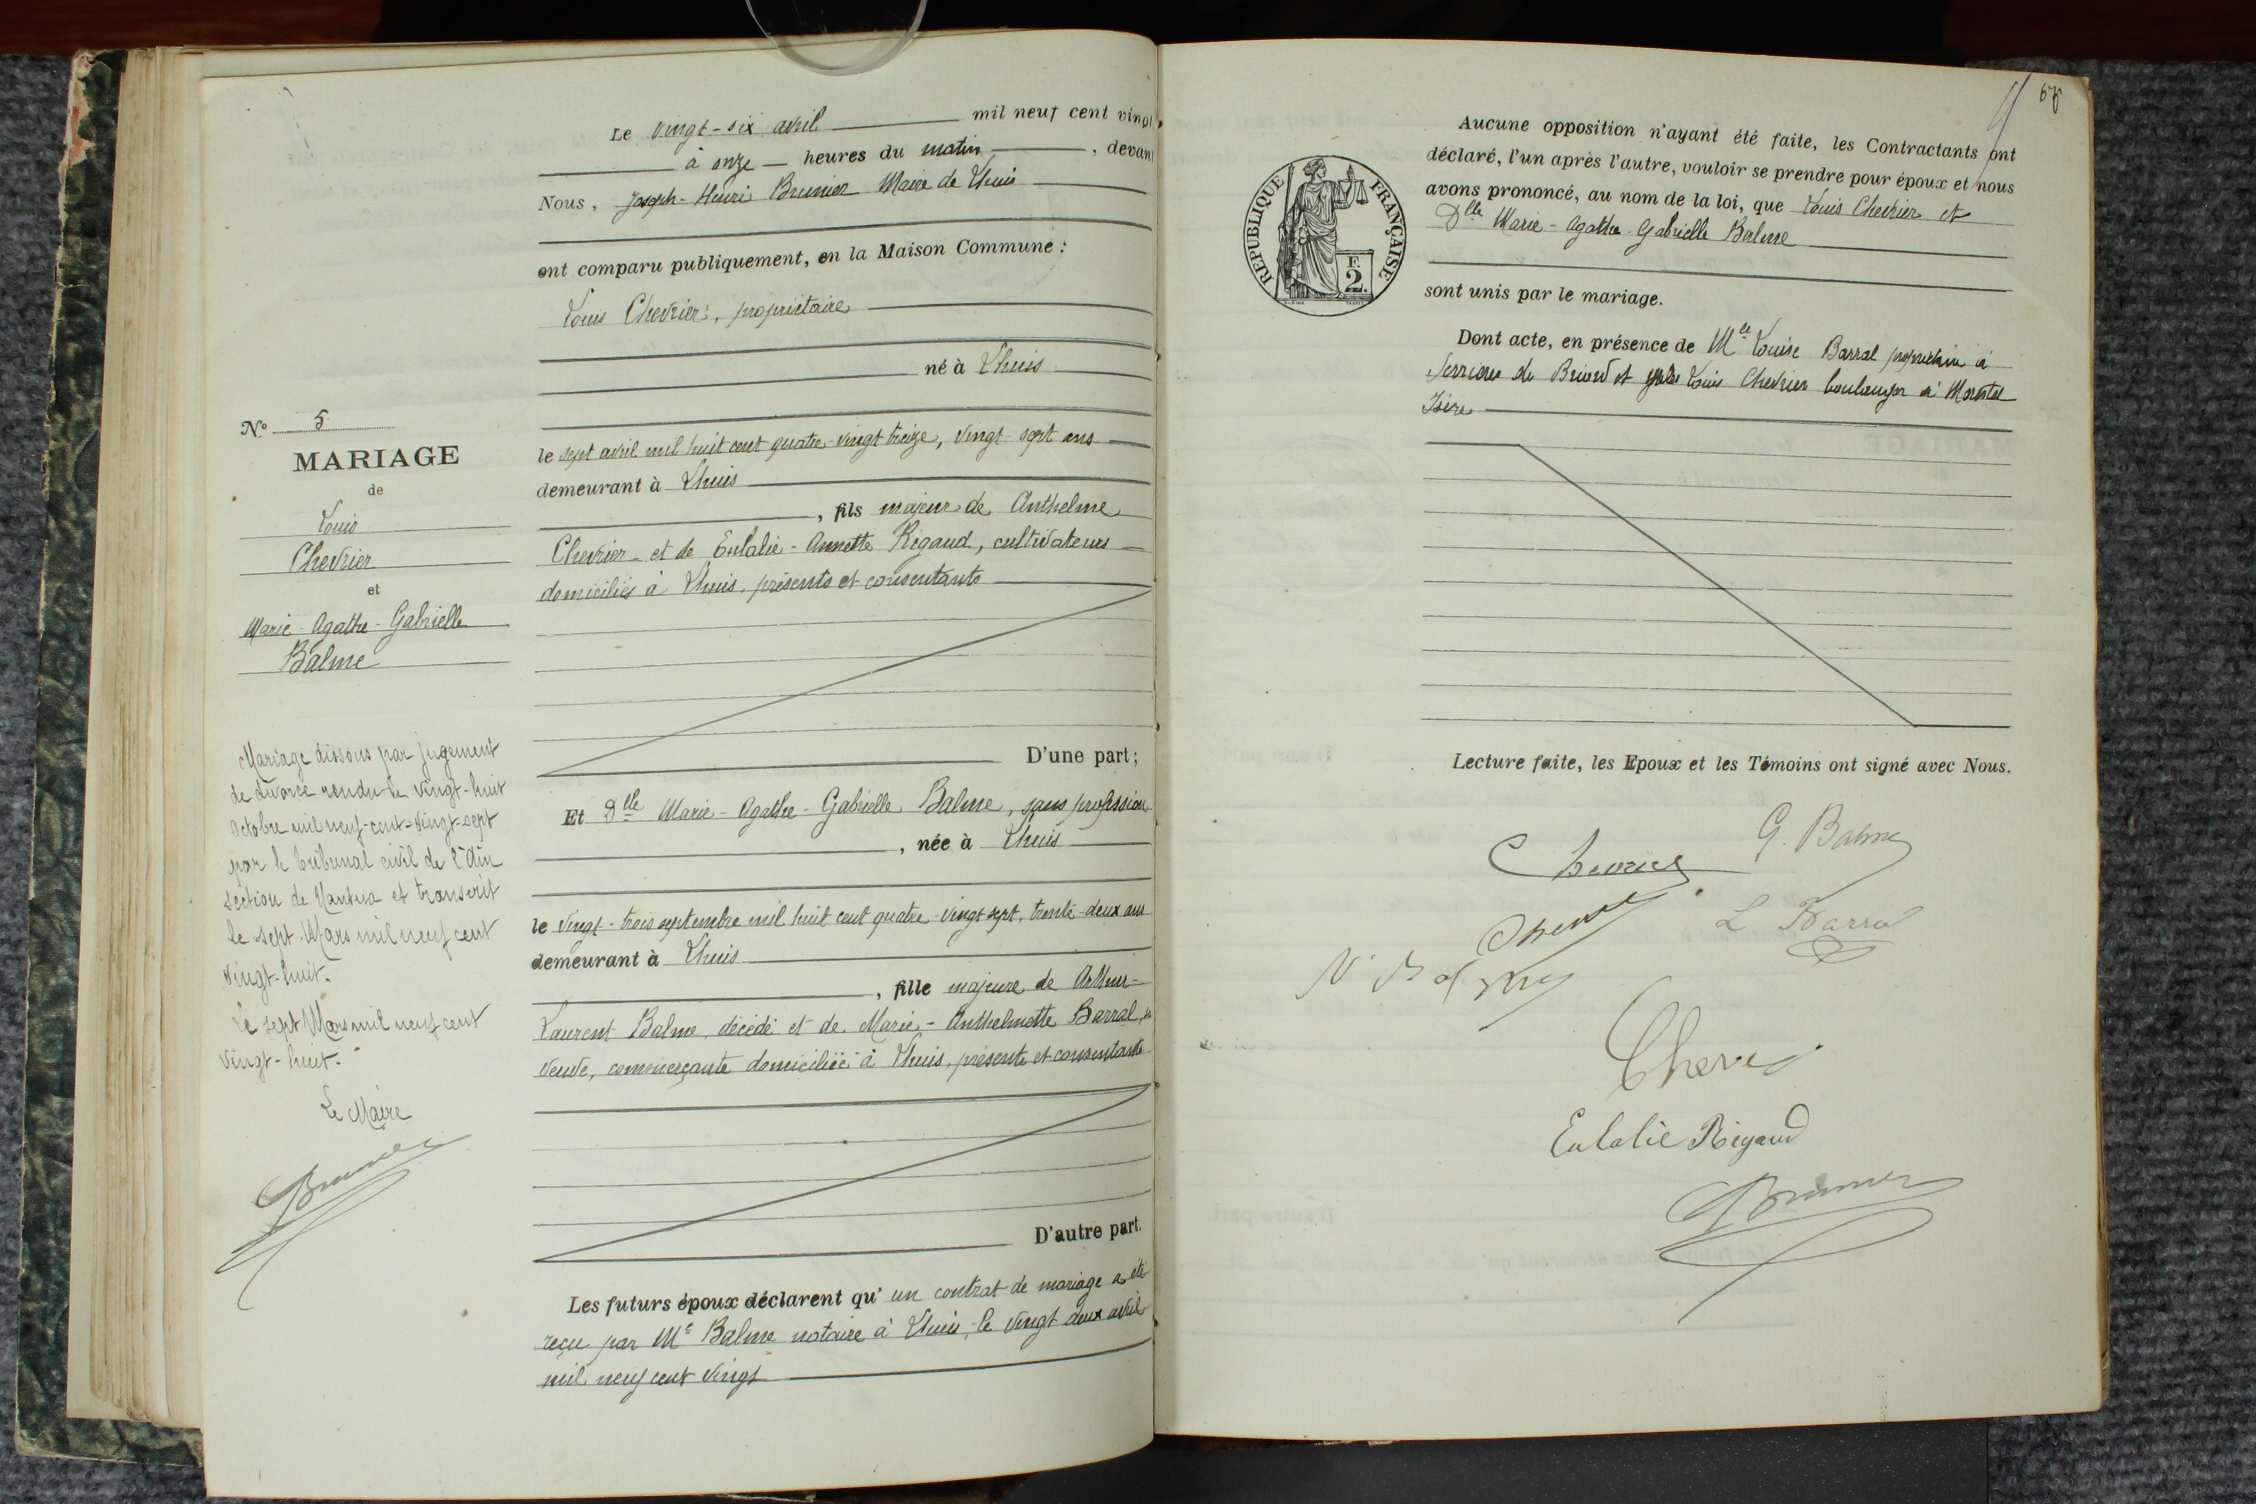 N° 5
MARIAGE
de
Louis
Chevrier
et
Marie-Agathe-Gabrielle
Balme
Mariage dissous par jugement
de divorce rendu le vingt-huit
Octobre mil neuf-cent-vingt-sept
par le tribunal civil de l'Ain
section de Nantua et transcrit
le sept Mars mil neuf cent
vingt-huit.
Le sept Mars mil neuf cent
vingt-huit.
Le Maire
Brunier
Le vingt-six avril mil neuf cent vingt
à onze heures du matin, devant
Nous, Joseph-Henri Brunier Maire de Lhuis
ont comparu publiquement, en la Maison Commune :
Louis Chevrier, propriétaire
né à Lhuis
le sept avril mil huit cent quatre-vingt treize, vingt-sept ans
demeurant à Lhuis
, fils majeur de Anthelme
Chevrier et de Eulalie-Annette Rigaud, cultivateurs
domiciliés à Lhuis, présents et consentants
D'une part ;
Et Dlle Marie-Agathe-Gabrielle Balme, sans profession
, née à Lhuis
le vingt-trois septembre mil huit cent quatre-vingt sept, trente-deux ans
demeurant à Lhuis
, fille majeure de Arthur-
Laurent Balme, décédé et de Marie-Anthelmette Barral, sa
veuve, commerçante domiciliée à Lhuis, présente et consentante
D'autre part.
Les futurs époux déclarent qu' un contrat de mariage a été
reçu par Me Balme notaire à Lhuis, le vingt deux avril
mil neuf cent vingt
REPUBLIQUE FRANÇAISE
F.
2.
Aucune opposition n'ayant été faite, les Contractants ont
déclaré, l'un après l'autre, vouloir se prendre pour époux et nous
avons prononcé, au nom de la loi, que Louis Chevrier et
Dlle Marie-Agathe-Gabrielle Balme
sont unis par le mariage.
Dont acte, en présence de Mlle Louise Barral propriétaire à
Serrières de Briord et Louis Chevrier boulanger à Morestel
Isère
Lecture faite, les Epoux et les Témoins ont signé avec Nous.
Chevrier
G. Balme
L Barral
Eulalie Rigaud
Brunier